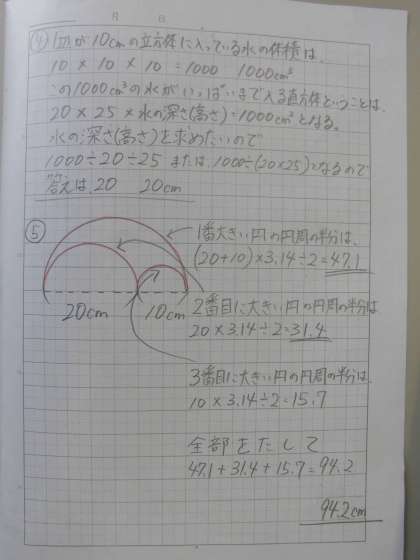 月 日
④ 1辺が10cmの立方体に入っている水の体積は、
10 × 10 × 10 = 1000 1000cm³
この1000cm³の水がいっぱいまで入る直方体ということは、
20 × 25 × 水の深さ(高さ) = 1000cm³となる。
水の深さ(高さ)を求めたいので
1000÷20÷25 または、1000÷(20×25)となるので
答えは、20 20cm
⑤
1番大きい円の円周の半分は、
(20+10)×3.14÷2=47.1
20cm 10cm
2番目に大きい円の円周の半分は
20×3.14÷2=31.4
3番目に大きい円の円周の半分は、
10×3.14÷2=15.7
全部をたして
47.1+31.4+15.7=94.2
94.2cm